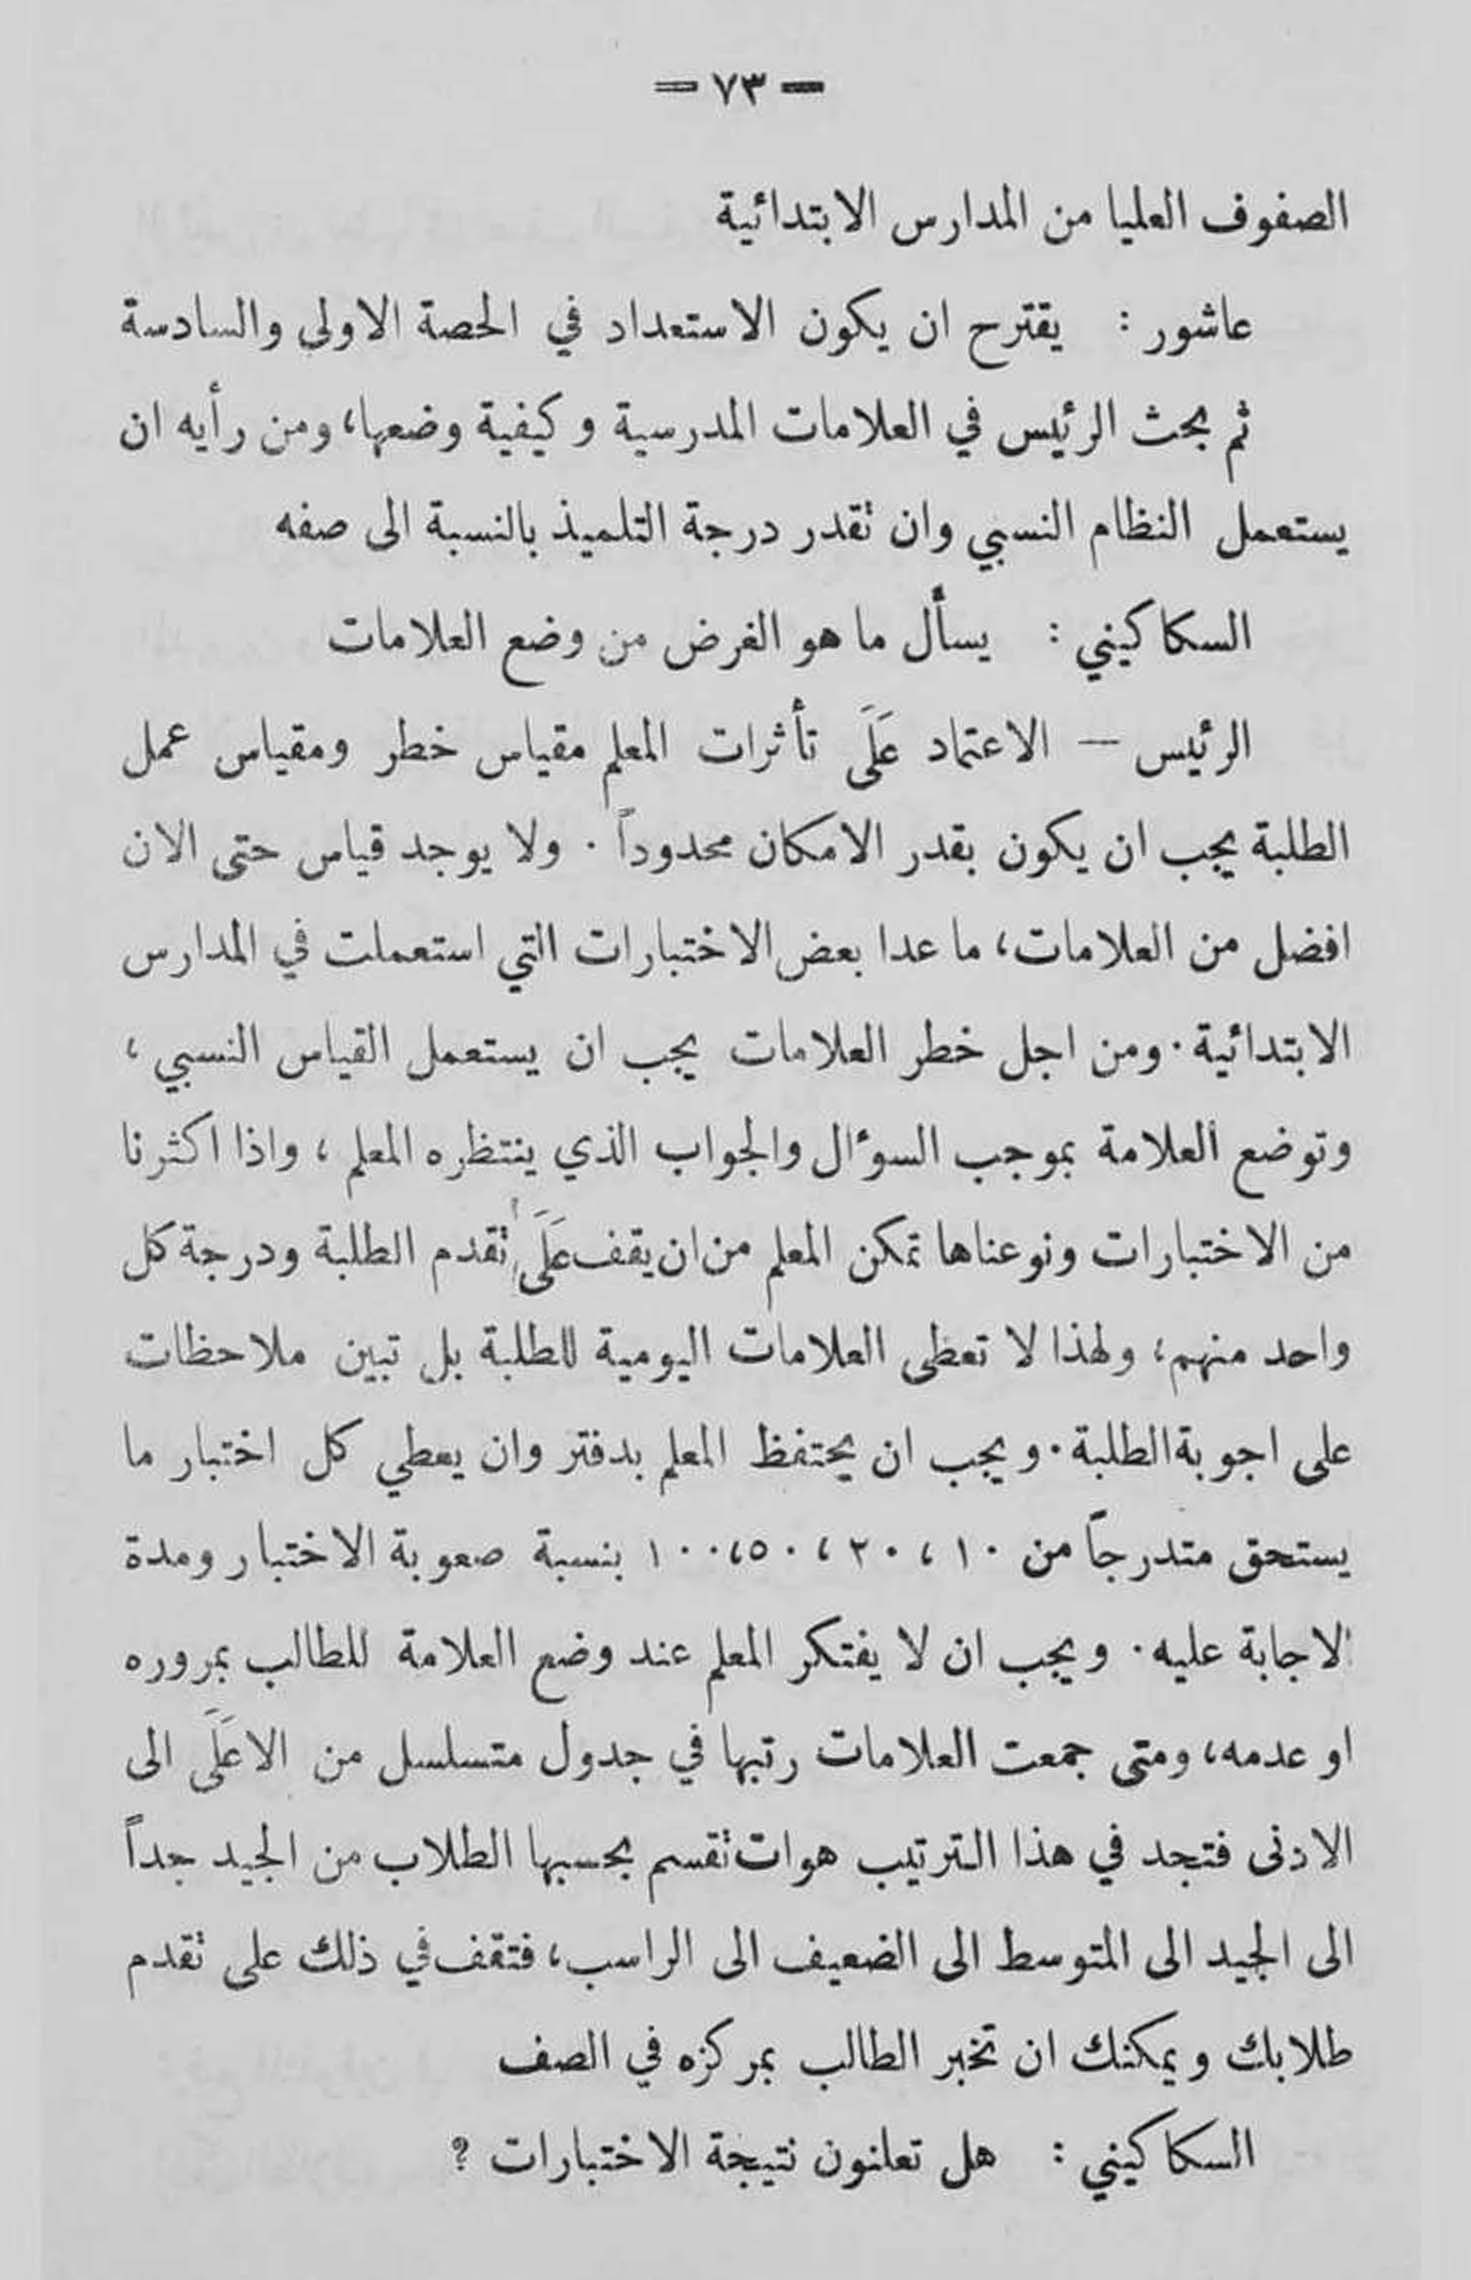 = ٧٣ =
الصفوف العليا من المدارس الابتدائية
عاشور : يقترح ان يكون الاستعداد في الحصة الاولى والسادسة
ثم بحث الرئيس في العلامات المدرسية وكيفية وضعها، ومن رأيه ان
يستعمل النظام النسبي وان تقدر درجة التلميذ بالنسبة الى صفه
السكاكيني : يسأل ما هو الغرض من وضع العلامات
الرئيس — الاعتماد عَلَى تأثرات المعلم مقياس خطر ومقياس عمل
الطلبة يجب ان يكون بقدر الامكان محدوداً . ولا يوجد قياس حتى الان
افضل من العلامات، ما عدا بعض الاختبارات التي استعملت في المدارس
الابتدائية . ومن اجل خطر العلامات يجب ان يستعمل القياس النسبي ،
وتوضع العلامة بموجب السوءال والجواب الذي ينتظره المعلم ، واذا اكثرنا
من الاختبارات ونوعناها تمكن المعلم من ان يقف عَلَى تقدم الطلبة ودرجة كل
واحد منهم، ولهذا لا تعطى العلامات اليومية للطلبة بل تبين ملاحظات
على اجوبة الطلبة . ويجب ان يحتفظ المعلم بدفتر وان يعطي كل اختبار ما
يستحق متدرجاً من ١٠ ، ٢٠ ، ٥٠ ،١٠٠ بنسبة صعوبة الاختبار ومدة
الاجابة عليه . ويجب ان لا يفتكر المعلم عند وضع العلامة للطالب بمروره
او عدمه، ومتى جمعت العلامات رتبها في جدول متسلسل من الاعَلَى الى
الادنى فتجد في هذا الترتيب هوات تقسم بحسبها الطلاب من الجيد جداً
الى الجيد الى المتوسط الى الضعيف الى الراسب، فتقف في ذلك على تقدم
طلابك ويمكنك ان تخبر الطالب بمركزه في الصف
السكاكيني : هل تعلنون نتيجة الاختبارات ؟